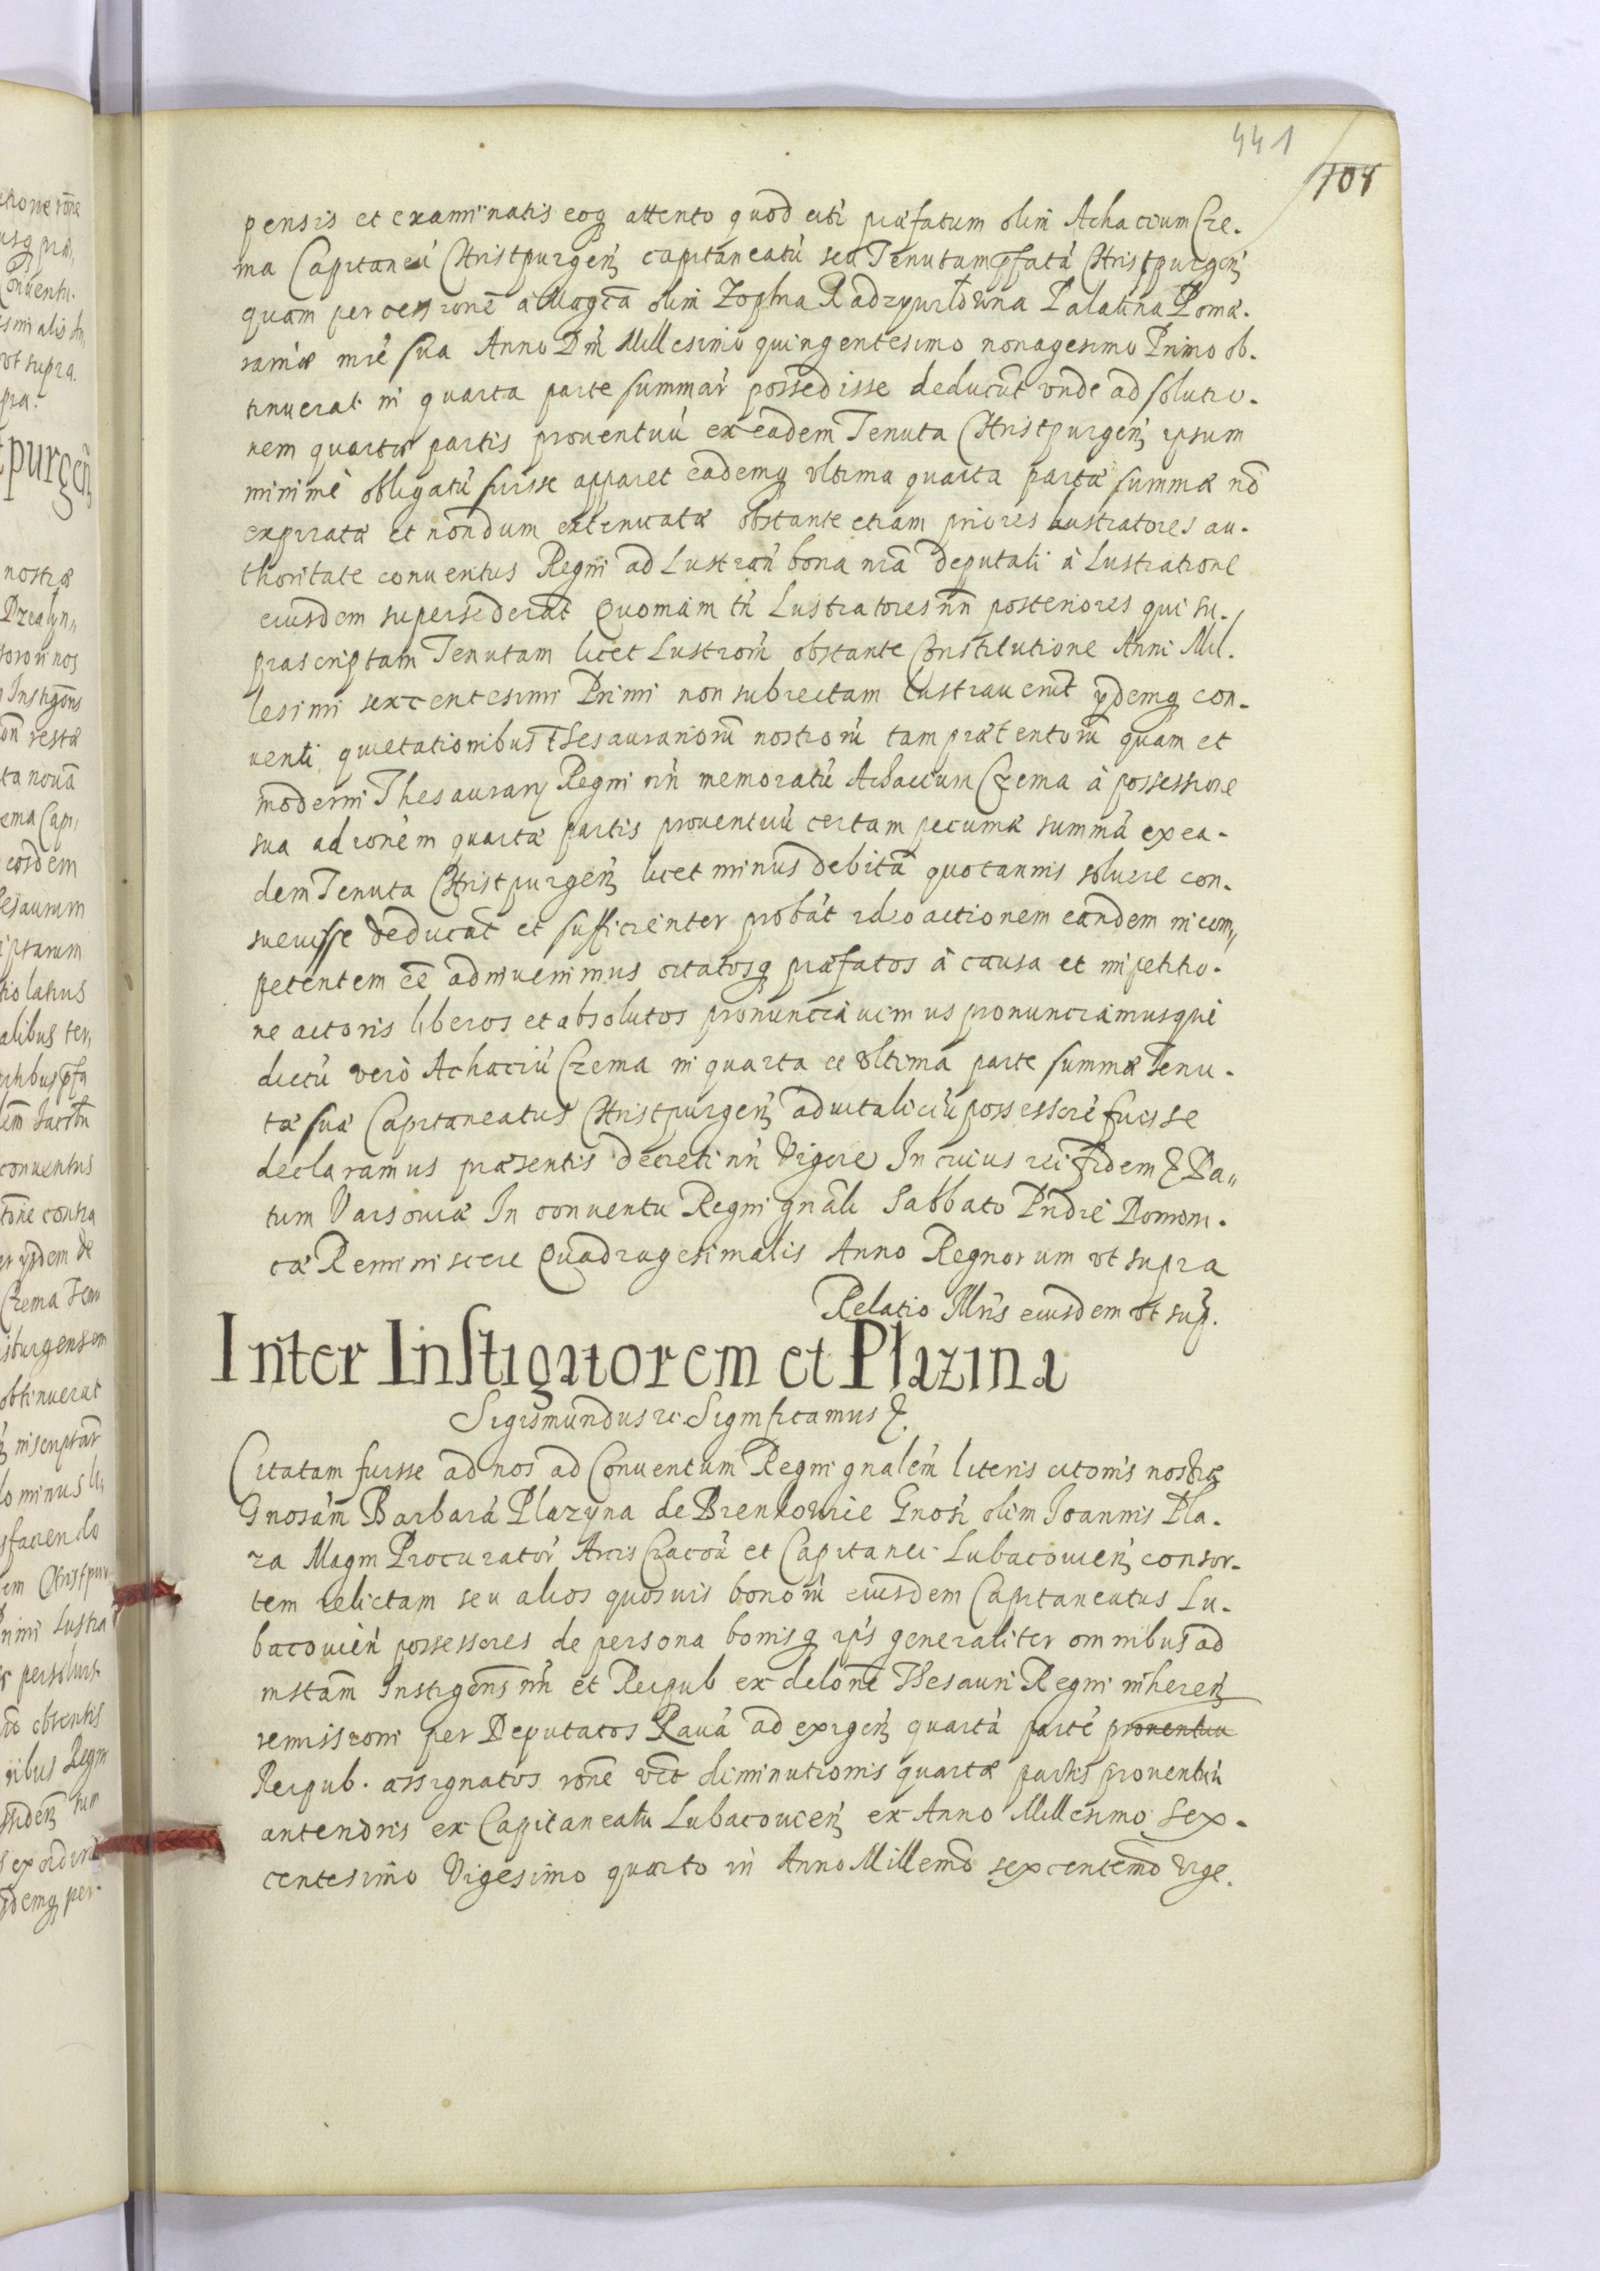 441
104
pensis et examinatis eoq attento quod citi præfatum olim Achacium Cze-
ma Capitaneũ Christpurgeñ capitaneatũ seu Tenutam pfatã Christpurgeñ
quam per cessionẽ a Magca olim Zophia Radzynil̃owna Palatina Pome-
raniæ mrẽ sua Anno Dnĩ Millesimo quingentesimo nonagesimo Primo ob-
tinuerat in quarta parte summar̃ possedisse deducũt vnde ad solutio-
nem quartæ partis prouentuũ ex eadem Tenuta Christpurgeñ ipsum
minimè obligatũ fuisse apparet eademq vltima quarta parte summæ nõ
expirata et nondum extenuata obstante etiam priores lustratores au-
thoritate conuentus Regni ad Lustrañ bona nrã deputati à Lustratione
eiusdem supersederãt Quoniam tñ Lustratores nri posteriores qui su-
prascriptam Tenutam licet Lustrationi obstante Constitutione Anni Mil-
lesimi sexcentesimi Primi non subiectam lustrauerũt ijdemq con-
uenti quietationibus Thesaurariorũ nostrorũ tam præteritorũ quam et
moderni Thesaurarij Regni nri memoratũ Achacium Czema à possessione
sua ad ronem quartæ partis prouentuũ certam pecuniæ summã ex ea-
dem Tenuta Christpurgeñ licet minus debitã quotannis soluere con-
sueuisse deducãt et sufficienter probãt ideo actionem eandem incom-
petentem eẽ adinuenimus citatosq præfatos à causa et impetitio-
ne actoris liberos et absolutos pronunciauimus pronunciamusque
dictũ verò Achaciũ Czema in quarta et vltima parte summæ Tenu-
tæ suæ Capitaneatus Christpurgeñ aduitaliciũ possessorẽ fuisse
declaramus præsentis decreti nri Vigore In cuius rei fidem & Da-
tum Varsouiæ In conuentu Regni gnãli Sabbato Pridiè Domini-
cæ Reminiscere Quadragesimalis Anno Regnorum vt supra
Relatio Illris eiusdem vt sup.
Inter Instigatorem et Plazina
Sigismundus &c Significamus &.
Citatam fuisse ad nos ad Conuentum Regni gnalem literis citonis nostræ
Gnosam Barbarã Plazyna de Brenkowice Gnosi olim Joannis Pla-
za Magni Procurator Arcis Cracou et Capitanei Lubacouien consor-
tem relictam seu alios quosuis bonorũ eiusdem Capitaneatus Lu-
bacouien possessores de persona bonisq ips generaliter omnibus ad
instam Instigens nri et Reipub ex delone Thesauri Regni inheren
remissioni per Deputatos Rauæ ad exigen quartã partẽ prouentuu
Reipub. assignatos rone vt diminutionis quartæ partis prouentuũ
antenoris ex Capitaneatu Lubacouien ex Anno Millesimo Sex-
centesimo Vigesimo quarto in Anno Millemo sexcentemo vige-